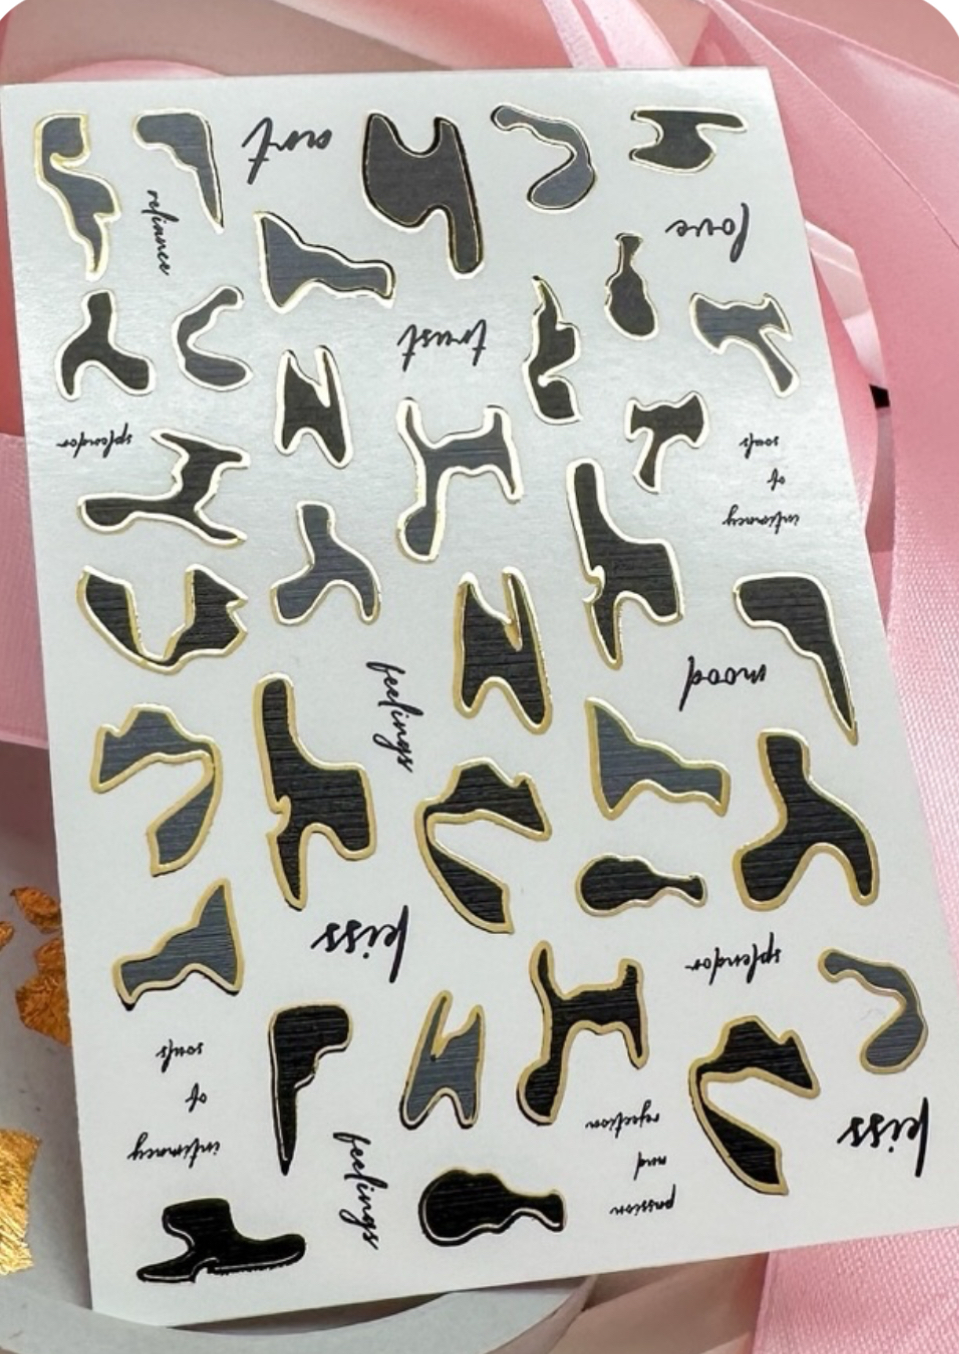 art
reliance
love
trust
splendor
intimacy
of
souls
feelings
mood
kiss
splendor
intimacy
of
souls
feelings
passion
and
rejection
kiss